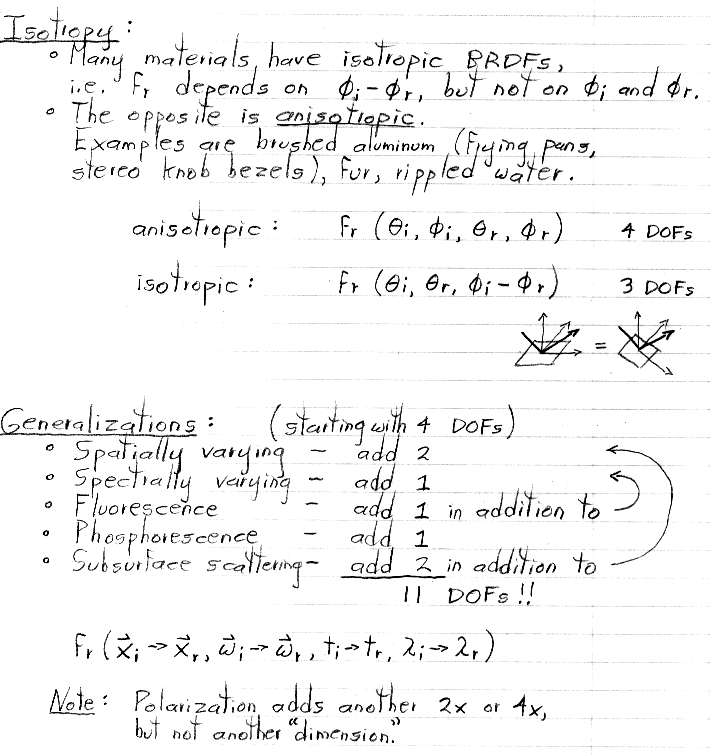 Isotropy:
◦ Many materials have isotropic BRDFs,
i.e. fr depends on ϕi-ϕr, but not on ϕi and ϕr.
◦ The opposite is anisotropic.
Examples are brushed aluminum (frying pans,
stereo knob bezels), fur, rippled water.
anisotropic: fr (θi, ϕi, θr, ϕr) 4 DOFs
isotropic: fr (θi, θr, ϕi - ϕr) 3 DOFs
=
Generalizations: (starting with 4 DOFs)
◦ Spatially varying - add 2
◦ Spectrally varying - add 1
◦ Fluorescence - add 1 in addition to
◦ Phosphorescence - add 1
◦ Subsurface scattering - add 2 in addition to
11 DOFs!!
fr (x⃗i → x⃗r, ω⃗i → ω⃗r, ti → tr, λi → λr)
Note: Polarization adds another 2x or 4x,
but not another "dimension."